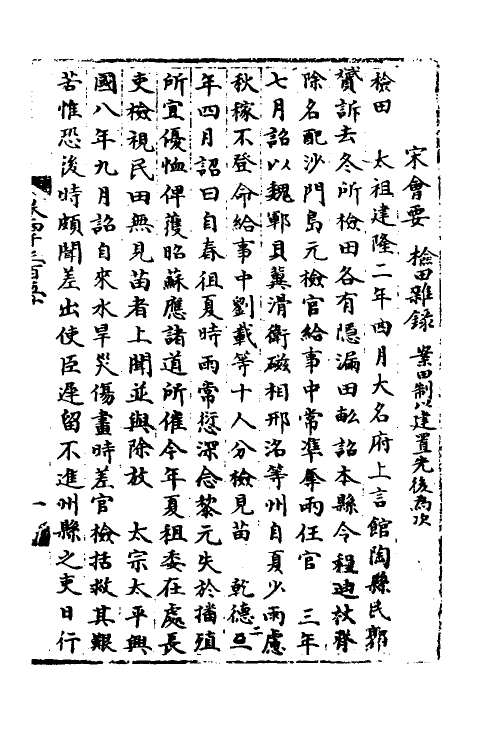 宋會要 檢田雜錄 案田制以建置先後為次
檢田 太祖建隆二年四月大名府上言館陶縣民郭
贇訴去冬所檢田各有隱漏田畝詔本縣令程迪杖脊
除名配沙門島元檢官給事中常準奪兩任官 三年
七月詔以魏鄆貝冀滑衛磁相邢洺等州自夏少雨慮
秋稼不登命給事中劉載等十人分檢見苗 乾德二
年四月詔曰自春徂夏時雨常愆深念黎元失於播殖
所宜優恤俾獲昭蘇應諸道所催今年夏租委在處長
吏檢視民田無見苗者上聞並與除放 太宗太平興
國八年九月詔自來水旱災傷盡時差官檢括救其艱
苦惟恐後時頗聞差出使臣遲留不進州縣之吏日行
一